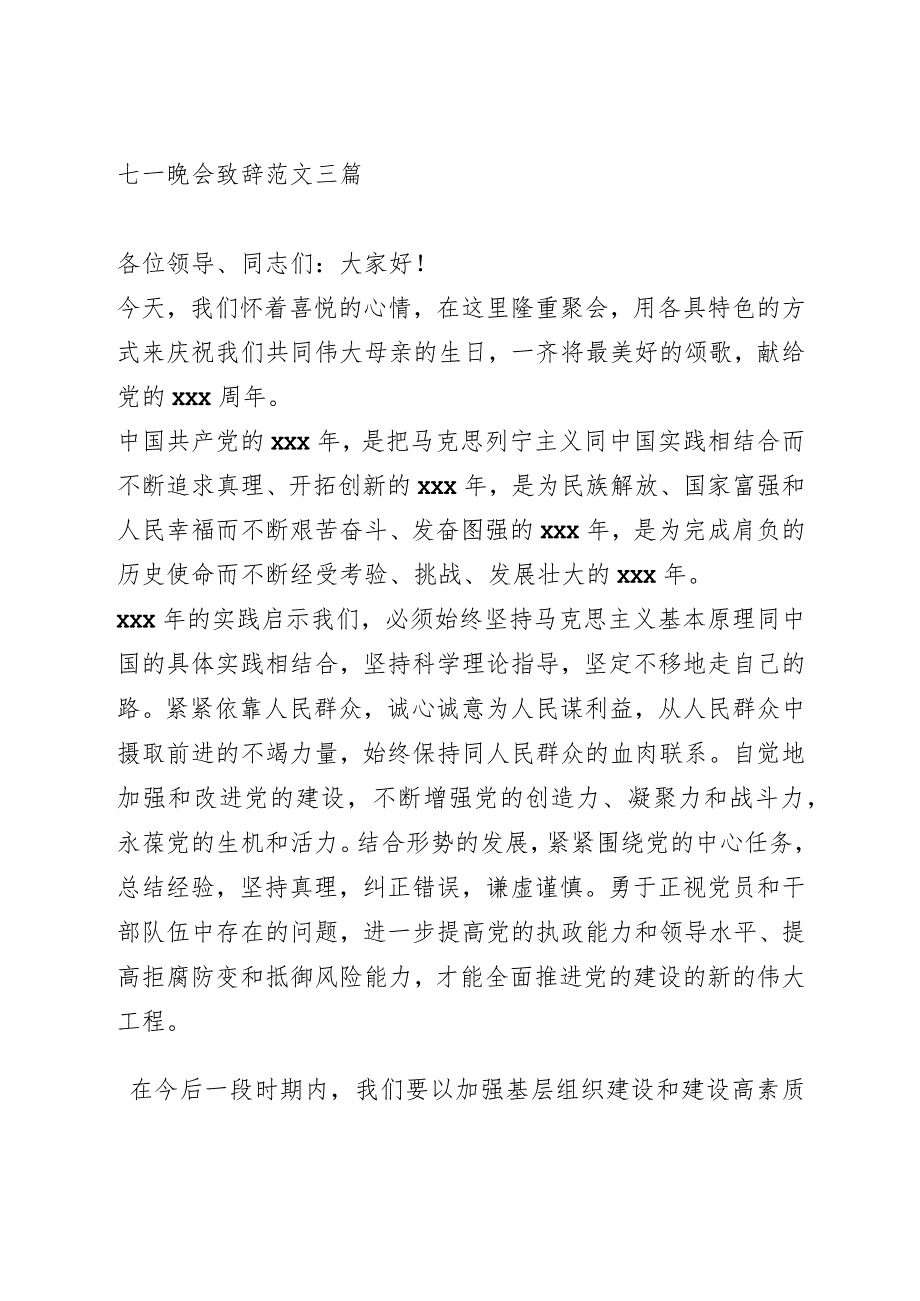 七一晚会致辞范文三篇
各位领导、同志们：大家好！
今天，我们怀着喜悦的心情，在这里隆重聚会，用各具特色的方
式来庆祝我们共同伟大母亲的生日，一齐将最美好的颂歌，献给
党的 xxx 周年。
中国共产党的 xxx 年，是把马克思列宁主义同中国实践相结合而
不断追求真理、开拓创新的 xxx 年，是为民族解放、国家富强和
人民幸福而不断艰苦奋斗、发奋图强的 xxx 年，是为完成肩负的
历史使命而不断经受考验、挑战、发展壮大的 xxx 年。
xxx 年的实践启示我们，必须始终坚持马克思主义基本原理同中
国的具体实践相结合，坚持科学理论指导，坚定不移地走自己的
路。紧紧依靠人民群众，诚心诚意为人民谋利益，从人民群众中
摄取前进的不竭力量，始终保持同人民群众的血肉联系。自觉地
加强和改进党的建设，不断增强党的创造力、凝聚力和战斗力，
永葆党的生机和活力。结合形势的发展，紧紧围绕党的中心任务，
总结经验，坚持真理，纠正错误，谦虚谨慎。勇于正视党员和干
部队伍中存在的问题，进一步提高党的执政能力和领导水平、提
高拒腐防变和抵御风险能力，才能全面推进党的建设的新的伟大
工程。
在今后一段时期内，我们要以加强基层组织建设和建设高素质